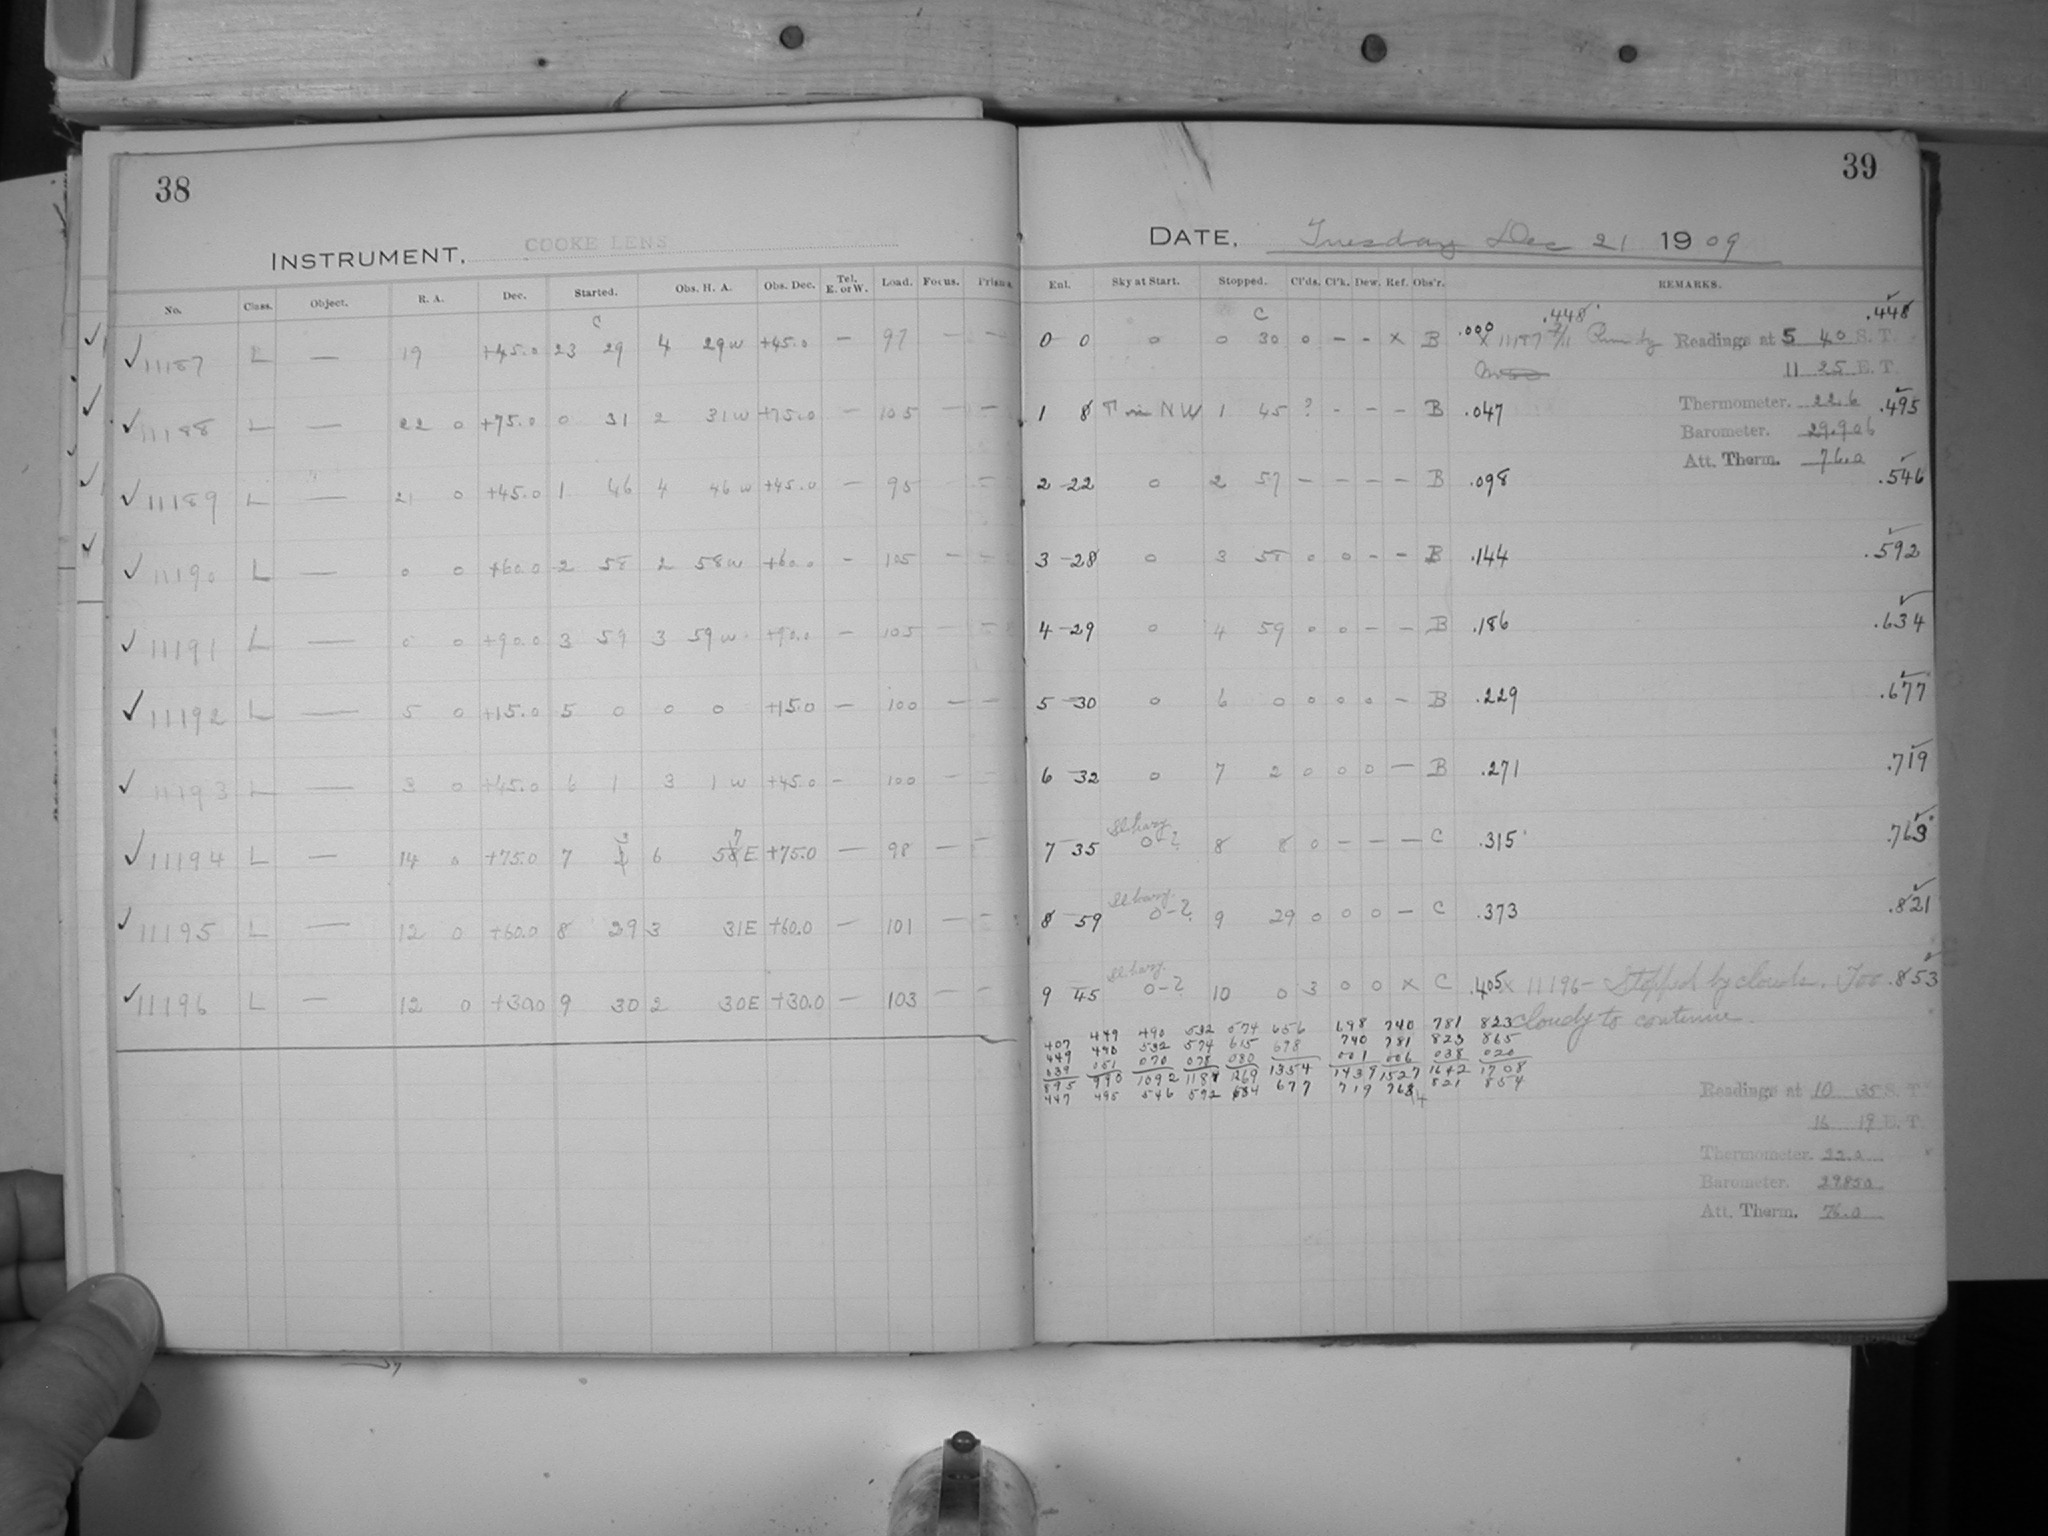 38
INSTRUMENT, COOKE LENS
No. Class. Object. R. A. Dec. Started. Obs. H. A. Obs. Dec. Tel. E. or W. Load. Focus. Prisms
✓ 11187 L — 19 +45.0 23 29 4 29 W +45.0 — 97 — —
✓ 11188 L — 22 0 +75.0 0 31 2 31 W +75.0 — 105 — —
✓ 11189 L — 21 0 +45.0 1 46 4 46 W +45.0 — 95 — —
✓ 11190 L — 0 0 +60.0 2 58 2 58 W +60.0 — 105 — —
✓ 11191 L — 0 0 +90.0 3 59 3 59 W +90.0 — 105 — —
✓ 11192 L — 5 0 +15.0 5 0 0 0 +15.0 — 100 — —
✓ 11193 L — 3 0 +45.0 6 1 3 1 W +45.0 — 100 — —
✓ 11194 L — 14 0 +75.0 7 3 6 57 E +75.0 — 98 — —
✓ 11195 L — 12 0 +60.0 8 29 3 31 E +60.0 — 101 — —
✓ 11196 L — 12 0 +30.0 9 30 2 30 E +30.0 — 103 — —
39
DATE, Tuesday Dec 21 1909
Enl. Sky at Start. Stopped. Cl'ds. Cl'k. Dew. Ref. Obs'r. REMARKS.
C .448 .448
0 0 0 0 30 0 — — x B .000 x 11187 Readings at 5 40 S. T.
11 25 E. T.
1 8 in NW 1 45 ? - - - B .047 Thermometer. 22.6 .495
Barometer. 29.906
Att. Therm. 76.0
2 -22 0 2 57 — — — — B .098 .546
3 -28 0 3 58 0 0 — — B .144 .592
4 -29 0 4 59 0 0 — — B .186 .634
5 -30 0 6 0 0 0 0 — B .229 .677
6 32 0 7 2 0 0 0 — B .271 .719
7 35 Sl. hazy 0-2 8 8 0 — — — C .315 .763
8 59 Sl. hazy 0-2 9 29 0 0 0 — C .373 .821
9 45 Sl. hazy 0-2 10 0 3 0 0 x C .405 x 11196 — Stopped by clouds. Too .853
cloudy to continue.
407 449 490 532 574 656 698 740 781 823
449 490 532 574 615 698 740 781 823 865
039 051 070 078 080 001 006 038 020
895 990 1092 1184 1269 1354 1439 1527 1642 1708
447 495 546 592 634 677 719 763 821 854
Readings at 10 35 S. T.
16 19 E. T.
Thermometer. 22.0
Barometer. 29850
Att. Therm. 76.0